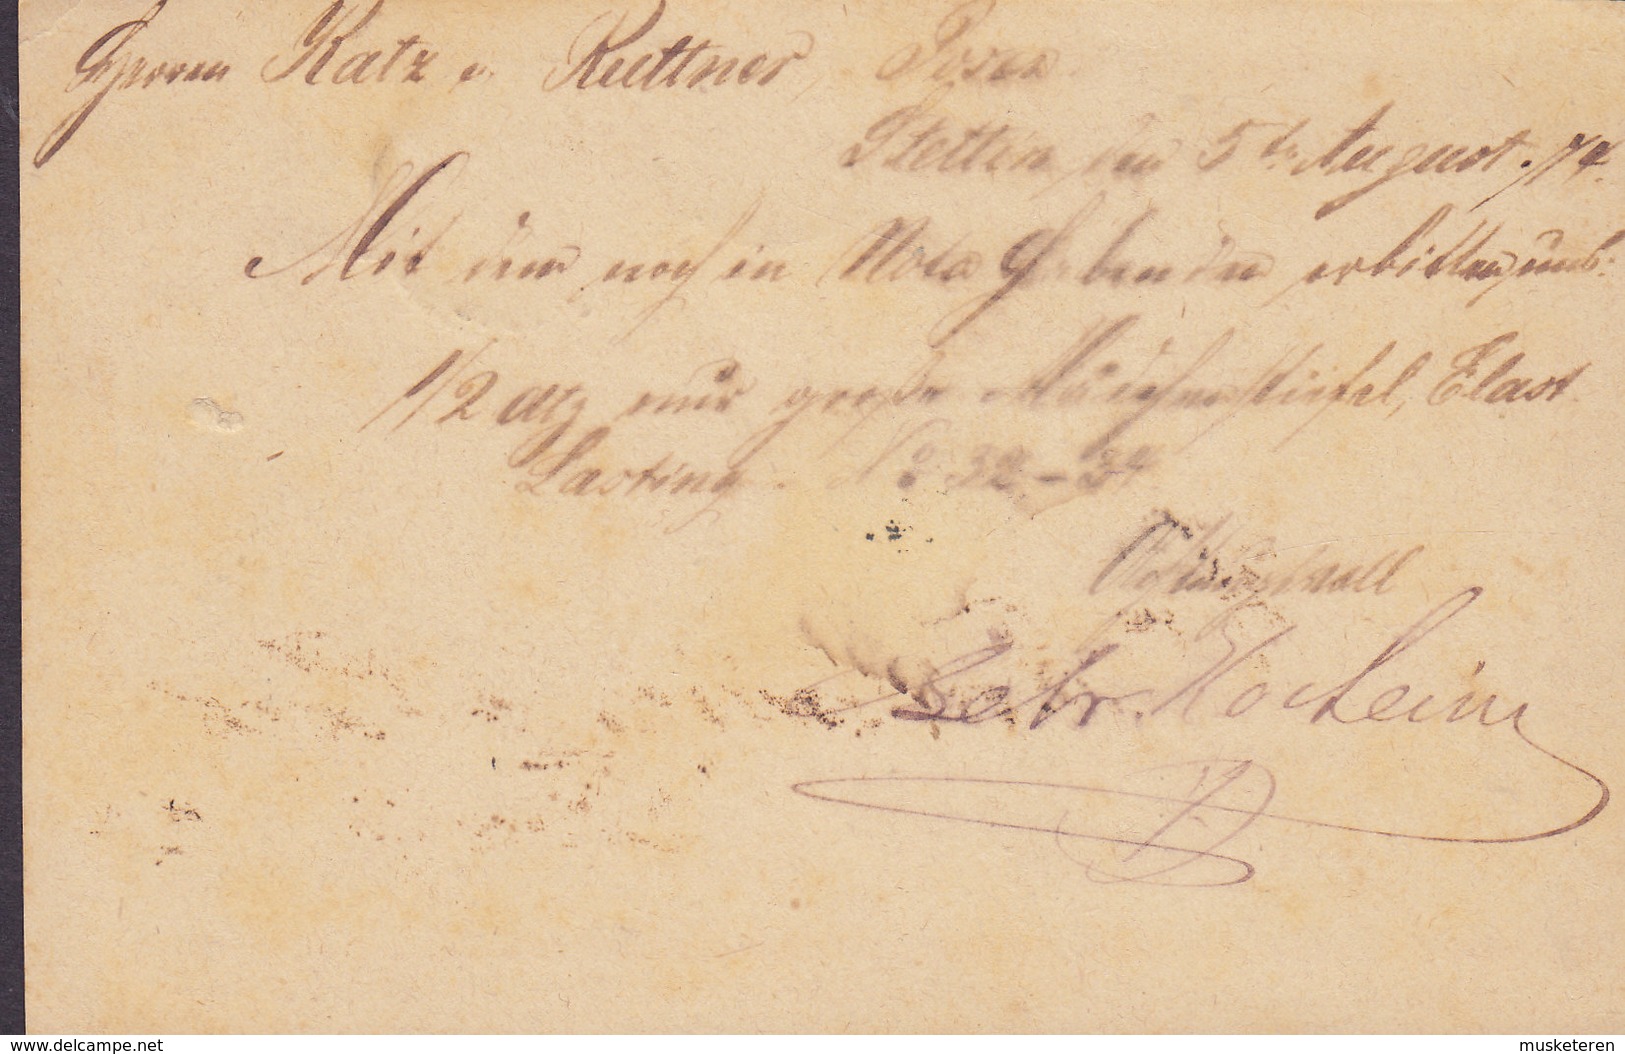 Herren Katz u. Kuttner, Posen
Stettin, den 5tn August 74.
Mit dem noch in Nota Gebenden erbitten umb.
1/2 Dtz nur große Mädchenstiefel, Elast.
Lasting. No 32–34
Achtungsvoll
Gebr.
www.delcampe.net
musketeren